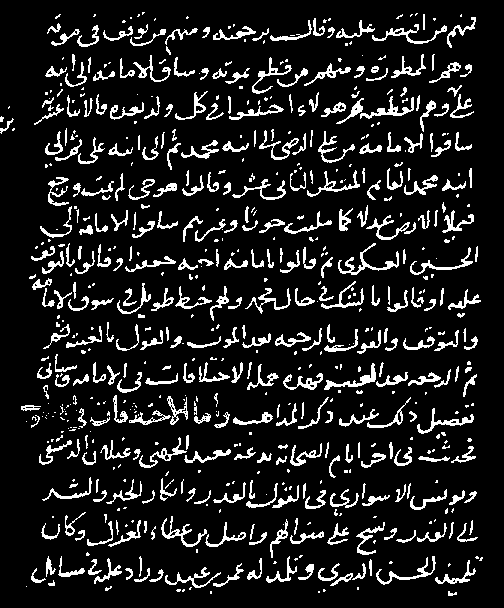 فمنهم من اقتصر عليه وقال برجعته ومنهم من توقف في موته
وهم الممطورة ومنهم من قطع بموته وساق الامامة الى ابنه
علي وهم القطعية ثم هولاء اختلفوا في كل ولد بعده فالاثنا عشرية
ساقوا الامامة من علي الرضى الى ابنه محمد ثم الى ابنه على ثم الى
ابنه محمد القايم المنتظر الثانى عشر وقالوا هو حي لم يمت ويرجع
فيملا الارض عدلا كما مليت جورا وغيرهم ساقوا الامامة الى
الحسن العسكرى ثم قالوا بامامة اخيه جعفر وقالوا بالتوقف
عليه او قالوا بالشك في حال محمد ولهم خبط طويل في سوق الامامة
والتوقف والقول بالرجعه بعد الموت والقول بالغيبة ثم
ثم الرجعه بعد الغيبة فهذه جملة الاختلافات فى الامامه وسياتى
تفصيل ذلك عند ذكر المذاهب واما الاختلافات في
فحدثت فى اخر ايام الصحابة بدعة معبد الجهنى وغيلان الدمشقى
ويونس الاسوارى فى القول بالقدر وانكار الخير والشر
الى القدر ونسج على منوالهم واصل بن عطاء الغزال وكان
تلميذ الحسن البصري وتلمذ له عمرو بن عبيد وزاد عليه في مسايل